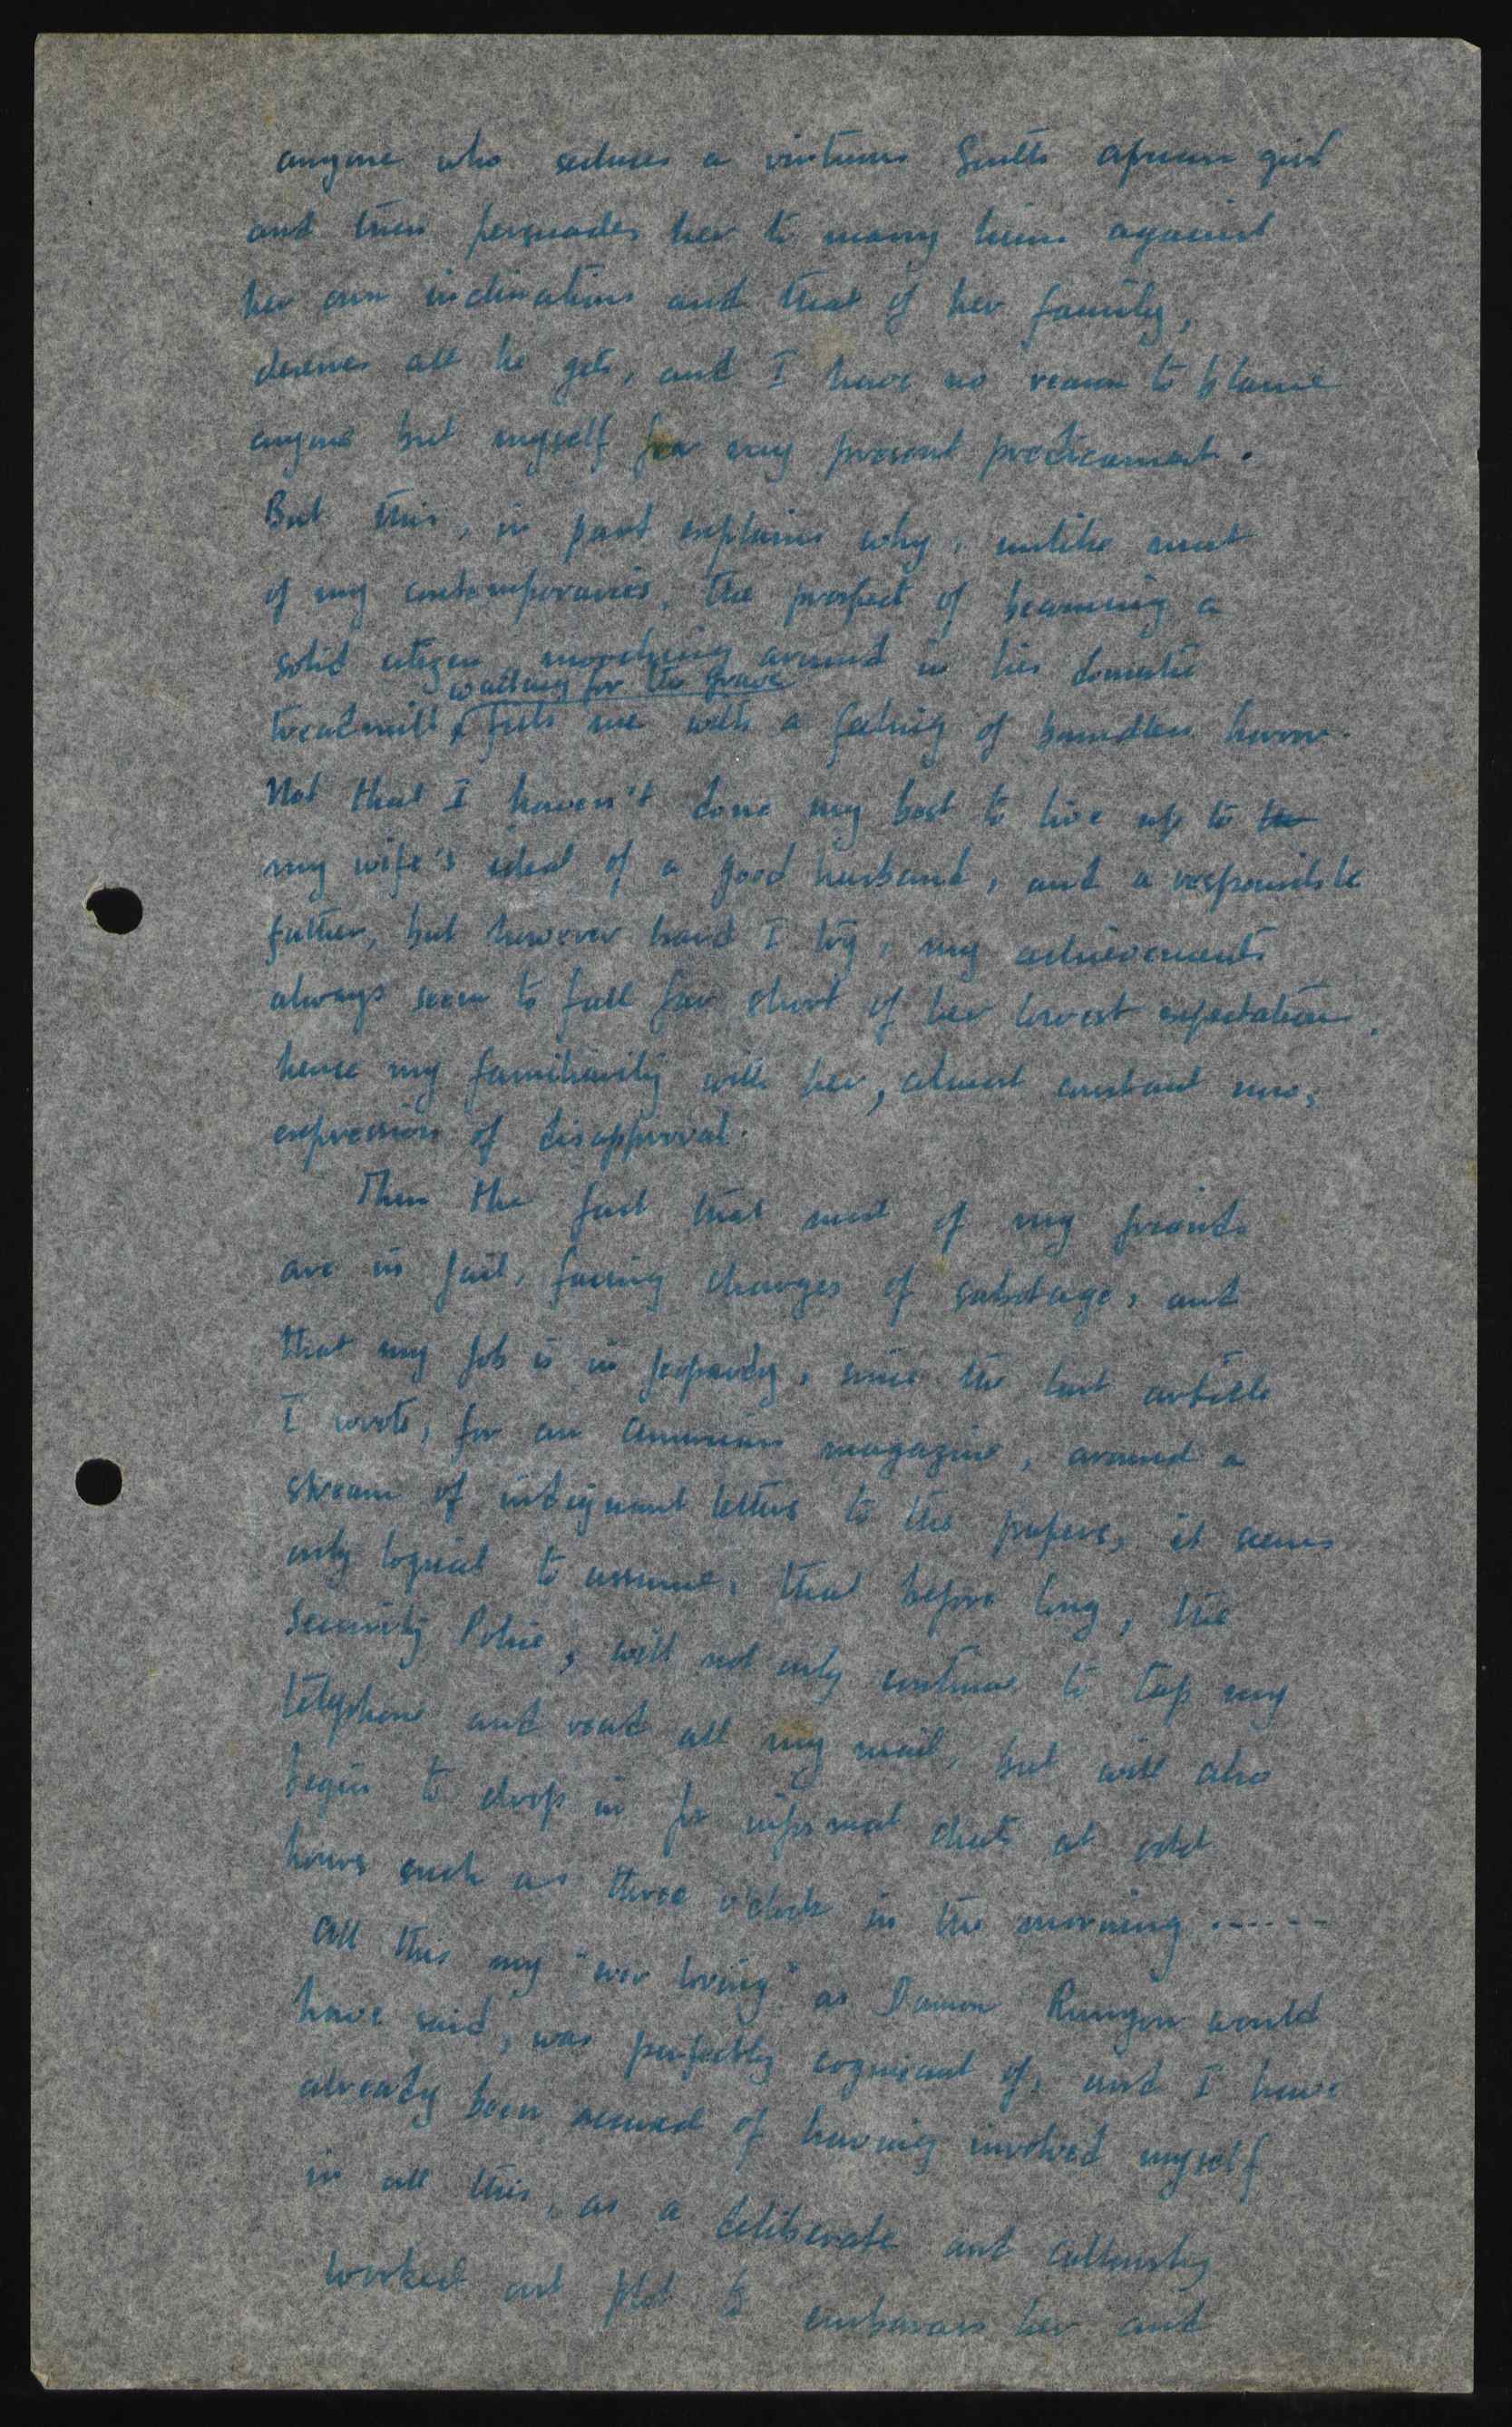 anyone who seduces a virtuous South African girl
and then persuades her to marry him against
her own inclinations and that of her family,
deserves all he gets, and I have no reason to blame
anyone but myself for my present predicament.
But this, in part explains why, unlike most
of my contemporaries, the prospect of becoming a
solid citizen, around in his domestic
waiting for the grave
treadmill, fills me with a feeling of boundless horror.
Not that I haven't done my best to live up to the
my wife's ideal of a good husband, and a responsible
father, but however hard I try, my achievements
always seem to fall far short of her lowest expectations,
hence my familiarity with her, almost constant now,
expression of disapproval.
Then the fact that most of my friends
are in jail, facing charges of sabotage, and
that my job is in jeopardy, since the last article
I wrote, for an American magazine, aroused a
stream of indignant letters to the papers, it seems
only logical to assume, that before long, the
Security Police, will not only continue to tap my
telephone and read all my mail, but will also
begin to drop in for informal chats at odd
hours such as three o'clock in the morning ------
All this my "ever loving" as Damon Runyon would
have said, was perfectly cognisant of, and I have
already been accused of having involved myself
in all this, as a deliberate and callously
worked out plot to embarass her and